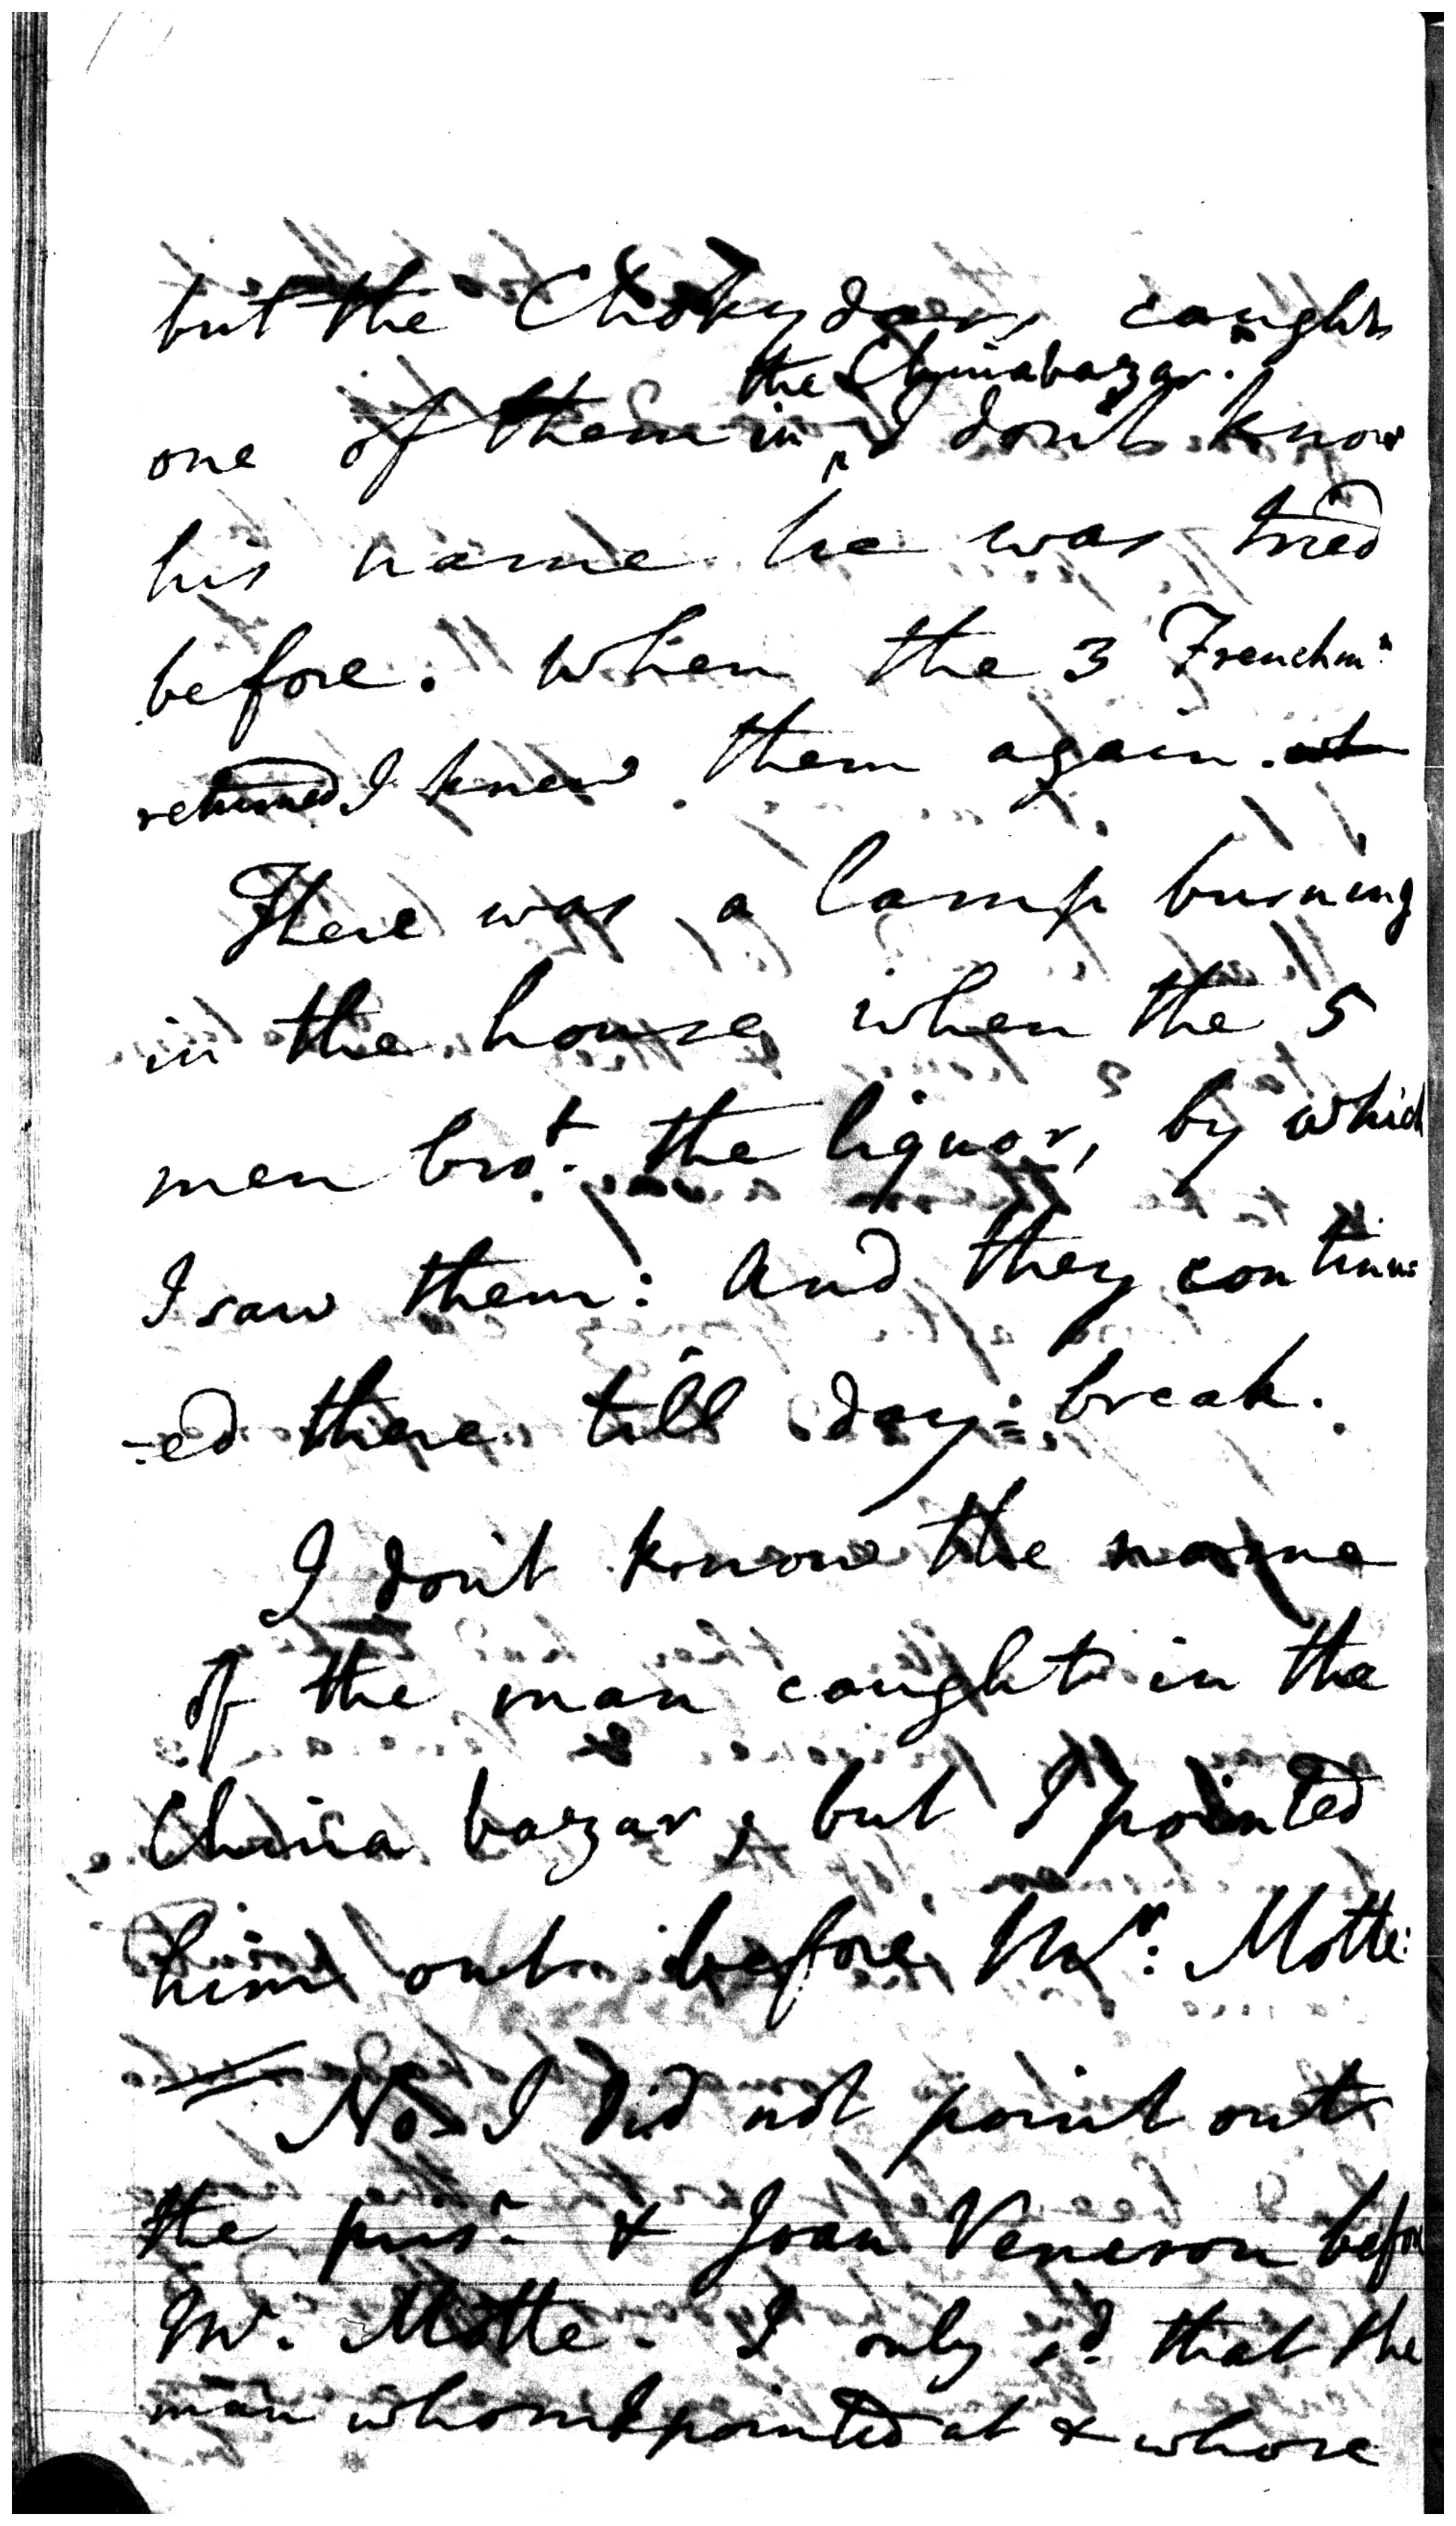 but the Chokydars caught
the Chinabazar.
one of them in ^ I don't know
his name he was tried
before. When the 3 Frenchmn
returned I knew them again.
There was a lamp burning
in the house when the 5
men brot. the liquor, by which
I saw them: And they continu:
-ed there till day=break.
I don't know the name
of the man caught in the
China bazar, but I pointed
him out before Mr: Motte:
No I did not point out
the prisr & Joan Veneron before
Mr. Motte. I only sd. that the
man whom I pointed at & whose